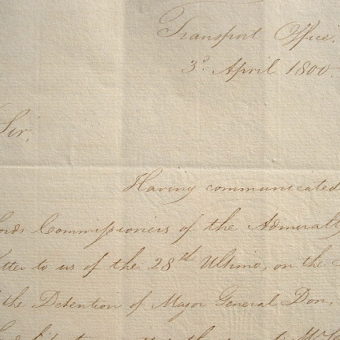 Transport Office.
3d April 1800.
Sir,
Having communicated
Lords Commissioners of the Admiralty
Letter to us of the 28th Ultimo, on the
the Detention of Major General Don,